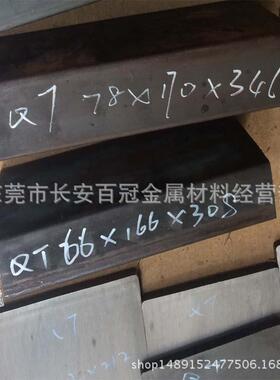 QT 78×170×346
东莞市长安百冠金属材料经营
QT 66×166×305
XT
XT
shop1489152477506.168